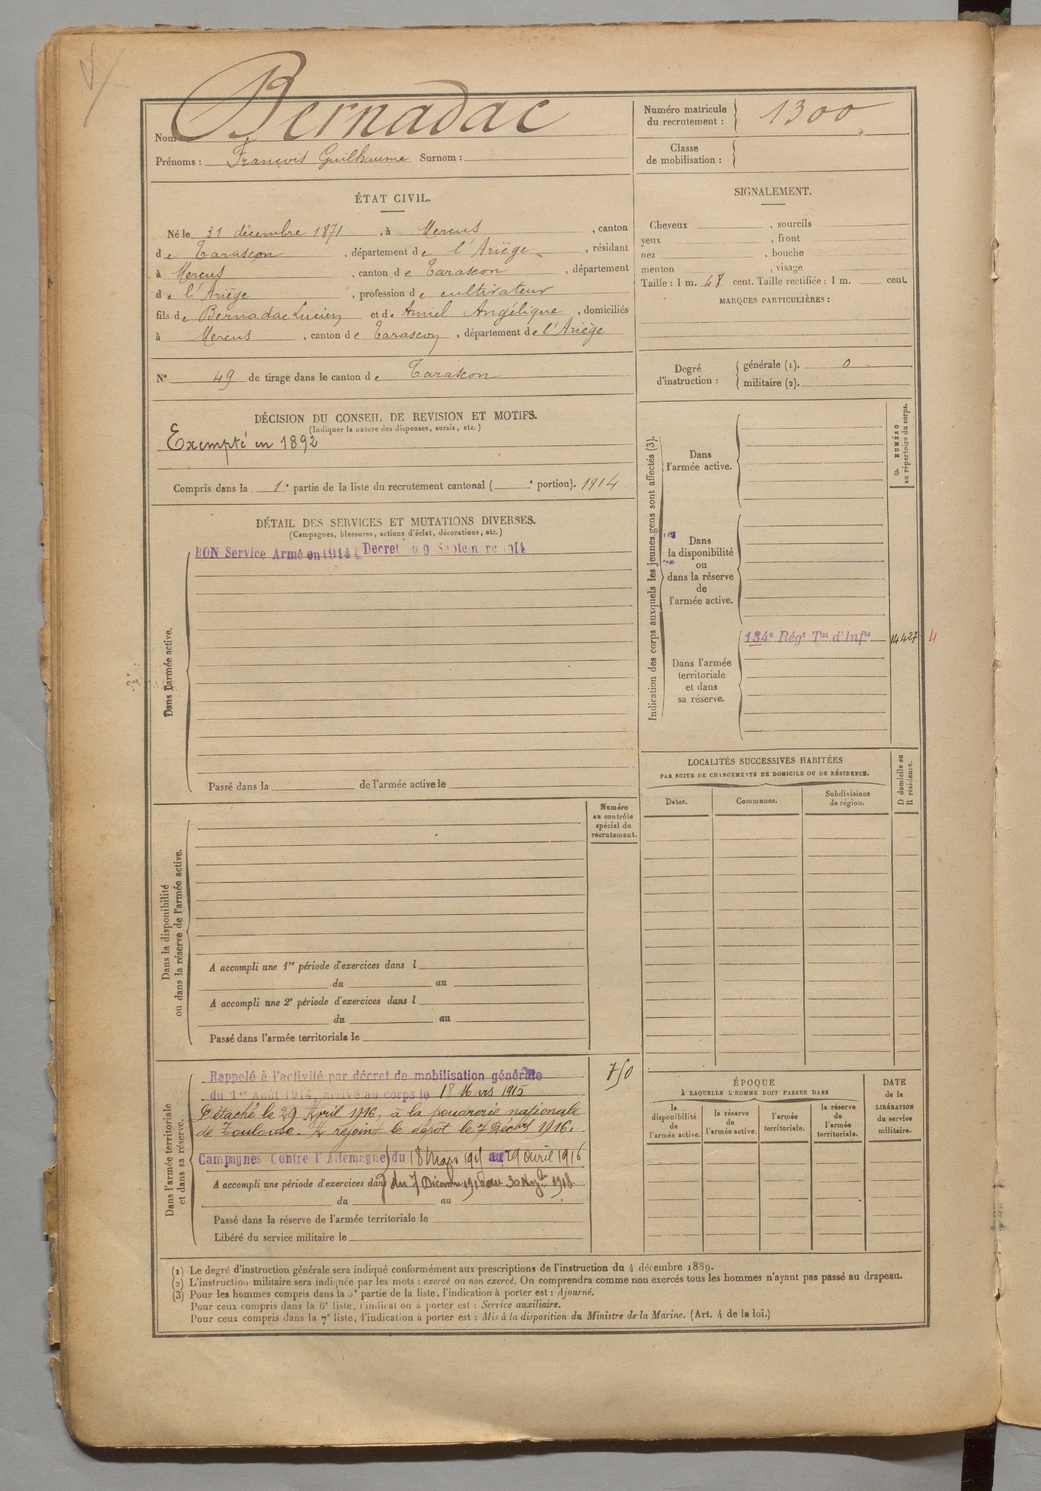 Nom : Bernadac
Prénoms : François Guillaume Surnom :
Numéro matricule du recrutement : 1300
Classe de mobilisation :
ÉTAT CIVIL.
Né le 31 décembre 1871, à Mercus, canton
de Tarascon, département de l'Ariège, résidant
à Mercus, canton de Tarascon, département
de l'Ariège, profession de cultivateur
fils de Bernadac Lucien et de Amiel Angélique, domiciliés
à Mercus, canton de Tarascon, département de l'Ariège
N° 49 de tirage dans le canton de Tarascon
SIGNALEMENT.
Cheveux , sourcils
yeux , front
nez , bouche
menton , visage
Taille : 1 m. 47 cent. Taille rectifiée : 1 m. cent.
MARQUES PARTICULIÈRES :
Degré d'instruction :
générale (1). 0
militaire (2).
DÉCISION DU CONSEIL DE REVISION ET MOTIFS.
(Indiquer la nature des dispenses, sursis, etc.)
Exempté en 1892
Compris dans la 1e partie de la liste du recrutement cantonal ( e portion). 1914
DÉTAIL DES SERVICES ET MUTATIONS DIVERSES.
(Campagnes, blessures, actions d'éclat, décorations, etc.)
BON Service Armé en 1914 Decret 9 Septem
Dans l'armée active.
Passé dans la de l'armée active le
Indication des corps auxquels les jeunes gens sont affectés (3).
NUMÉRO au répertoire du corps.
Dans l'armée active.
Dans la disponibilité ou dans la réserve de l'armée active.
Dans l'armée territoriale et dans sa réserve.
134e Régt Tal d'Infie 14427 4
LOCALITÉS SUCCESSIVES HABITÉES
PAR SUITE DE CHANGEMENTS DE DOMICILE OU DE RÉSIDENCE.
Dates. Communes. Subdivisions de région. D domicile ou R résidence.
Numéro au contrôle spécial du recrutement.
Dans la disponibilité ou dans la réserve de l'armée active.
A accompli une 1re période d'exercices dans l
du au
A accompli une 2e période d'exercices dans l
du au
Passé dans l'armée territoriale le
Dans l'armée territoriale et dans sa réserve.
Rappelé à l'activité par décret de mobilisation générale
du 1er Août 1914, arrivé au corps le 18 Mars 1915
Détaché le 29 Avril 1916, à la poudrerie nationale
de Toulouse. A rejoint le dépôt le 7 Décbre 1916.
Campagnes Contre l'Allemagne du 18 Mars 1915 au 29 avril 1916
A accompli une période d'exercices dans du 7 Décembre au 30 1918
du au
Passé dans la réserve de l'armée territoriale le
Libéré du service militaire le
750
ÉPOQUE
À LAQUELLE L'HOMME DOIT PASSER DANS
la disponibilité de l'armée active. la réserve de l'armée active. l'armée territoriale. la réserve de l'armée territoriale.
DATE de la LIBÉRATION du service militaire.
(1) Le degré d'instruction générale sera indiqué conformément aux prescriptions de l'instruction du 4 décembre 1889.
(2) L'instruction militaire sera indiquée par les mots : exercé ou non exercé. On comprendra comme non exercés tous les hommes n'ayant pas passé au drapeau.
(3) Pour les hommes compris dans la 5e partie de la liste, l'indication à porter est : Ajourné.
Pour ceux compris dans la 6e liste, l'indication à porter est : Service auxiliaire.
Pour ceux compris dans la 7e liste, l'indication à porter est : Mis à la disposition du Ministre de la Marine. (Art. 4 de la loi.)